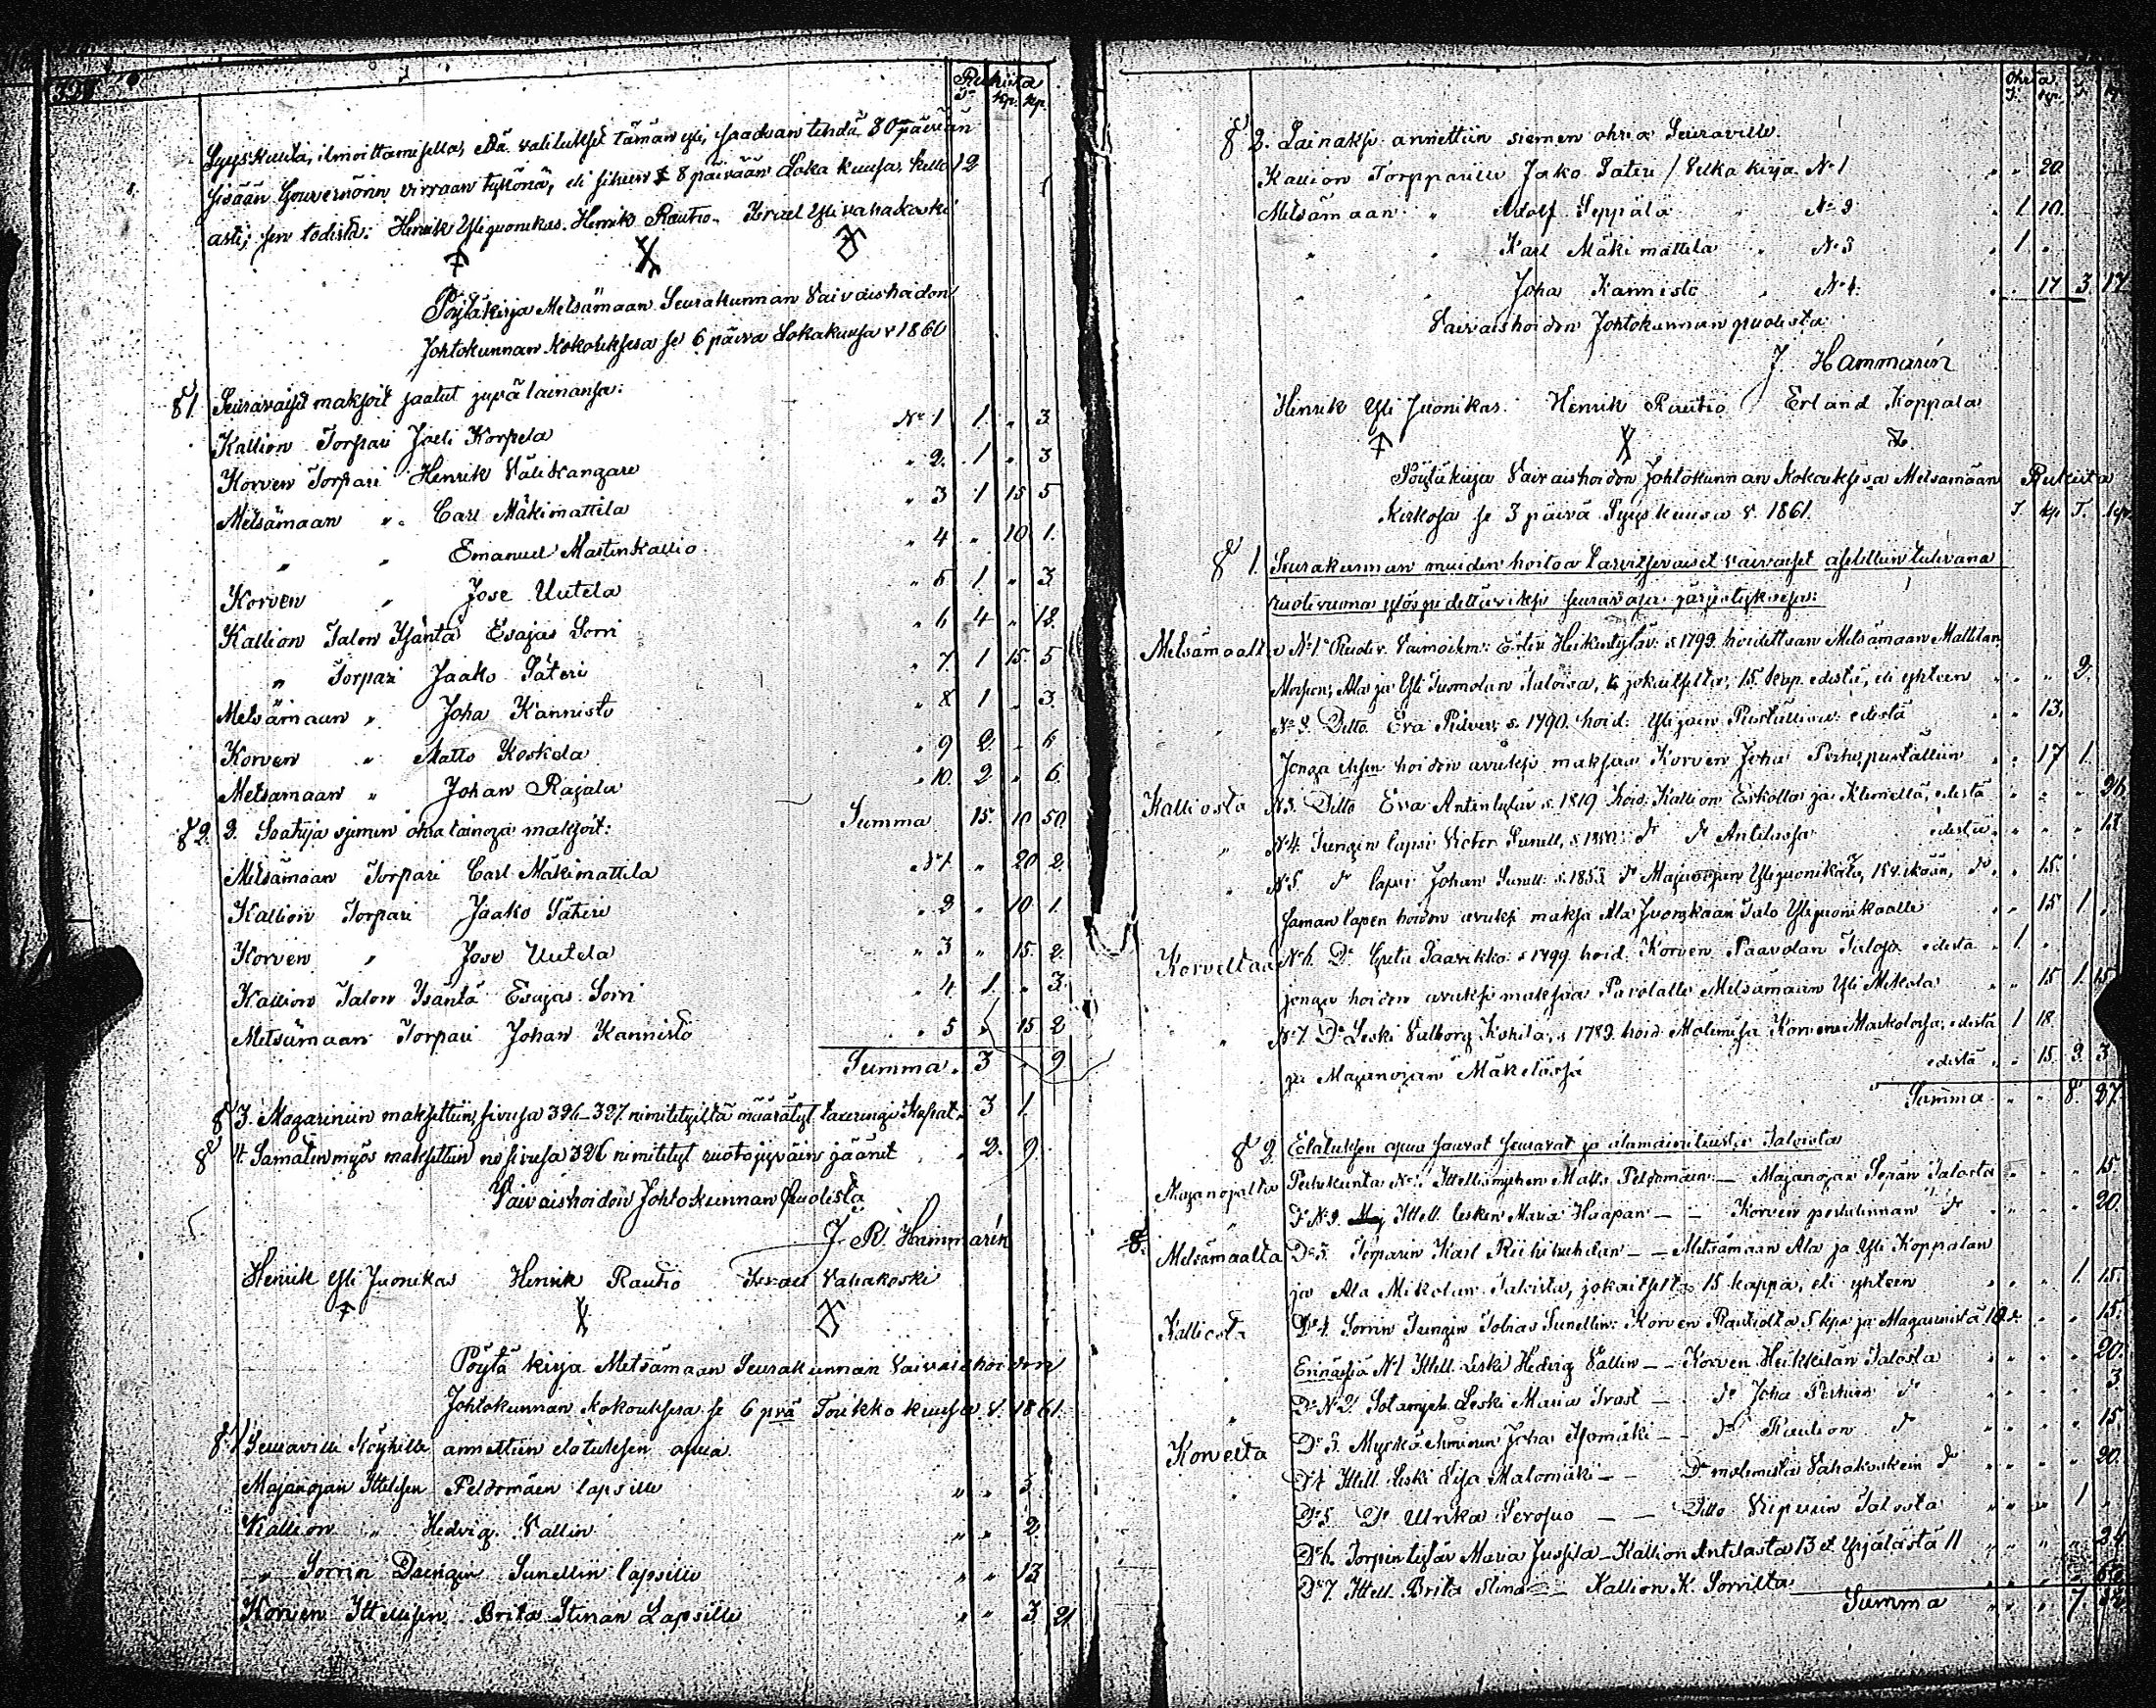 328
Rukiita
T. kp. kp.
Syyskuuta, ilmoittamisella, että valitukset tämän yli, saadaan tehdä 30 päivän
sisään Gouvernörin virraan tykönä, eli siihen 8 päivään Loka kuusa, kello 12
asti; sen todistá: Henrik Yli juonikas. Henrik Rautio. Israel Yli vahakoski
Pöytäkirja Metsämaan Seurakunnan Vaivaishoidon
Johtokunnan Kokouksesa se 6 päivä Lokakuusa v 1860
§ 1 Seuravaiset maksoit saatut jyvä lainansa:
Kallion Torpari Joeli Korpela No 1 1 " 3
Korven Torpari Henrik Välikangare " 2. 1 " 3
Metsämaan " Carl Mäkimattila " 3 1 15 5
" " Emanuel Mastenkallio " 4 " 10 1.
Korven " Jose Uutela " 5 1 " 3
Kallion Talon Ysäntä Esajas Sorri " 6 4 " 18.
" Torpari Jaako Säteri " 7 1 15. 5
Metsämaan " Joha Kannisto " 8 1 " 3.
Korven " Matts Koskela " 9 2. " 6
Metsämaan " Johan Rajala " 10. 2 " 6.
Summa 15. 10 50.
§ 2. 2. Saatuja sjemen ohra lainoja maksoit:
Metsämaan Torpari Carl Mäkimattila No 1 " 20 2.
Kallion Torpari Jaako Säteri " 2 " 10 1.
Korven " Jose Uutela " 3 " 15. 2.
Kallion Talon Ysäntä Esajas Sorri " 4 1. " 3.
Metsämaan Torpari Johan Kannisto " 5 " 15 2
Summa. 3 " 9
§ 3. Magasiniin maksettiin, sivusa 326-327 nimitetyiltä määrätyt taxeringi Kapat. 3 1.
§ 4. Samaten myös maksettiin ne sivusa 326 nimitetyt ruotojyväin jäänet . 2. 9.
Vaivaishoidon Johtokunnan Puolesta
J. R. Hammarén
Henrik Yli Juonikas Henrik Rautio Israel Vahakoski
Pöytä kirja Metsämaan Seurakunnan Vaivaishoidon
Johtokunnan kokouksesa se 6 prä Toukko kuusa v. 1861.
§ 1 Seuraville Köyhille annettiin elatuksen apua
Majanojan Ittelisen Peldomäen lapsille " " 5.
Kallion " Hedvig Vallin " " 2.
" Sorrin Drengin Sunellin lapsille " " 13
Korven Ittellisen Brita Stinan Lapsille " " 3. 21
Ohria
T. kp. T. kp.
§ 2. Lainaksi annettiin siemen ohria Seuraville.
Kallion Torpparille Jako Säteri / Velka kirja No 1 " " 20.
Metsämaan " Adolf Seppälä " No 2 " 1 10.
" " Karl Mäki mattila " No 3 " 1 "
" " Joha Kannisto " No 4. " " 17 3. 17
Vaivaishoidon Johtokunnan puolesta
J. Hammarén
Henrik Yli Juonikas. Henrik Rautio Erland Koppala
Pöytä kirja Vaivaishoidon Johtokunnan Kokouksesa Metsamaan
Kirkosa se 3 päivä Syyskuusa v. 1861.
Rukiita
T. kp T. kp.
§ 1. Seurakunnan muiden hoitoa tarvitsevaiset vaivaiset asetettiin tulevana
ruotivuona ylös pidettäviksi seuravasa järjestyksesä:
Metsämaalta No 1. Ruoti v. Vaimoihm: Heikintytär s. 1793 hoidettaan Metsämaan Mattilan
Ala ja Yli Tuomolan Taloisa, jokaitselta, 15. kap. edestä, eli yhteen " " " 2.
" No 2. Ditto Eva s. 1790. hoid: edestä " " 13.
hoidon avuksi maksaa Korven Joha " " 17 1.
Kalliosta No 3. Ditto Eva Antintytär s. 1819 hoid: Kallion Eskolla ja Klemelä, edestä " " " 26
" No 4. Drengin lapsi Victor Sunell, s. 1850. do do Antilassa edestä " " " 15
" No 5. do lapsi Johan Sunell. s. 1853 do Majanojan Yli juonikala, do. " 15.
Saman lapen hoidon avuksi maksa Ala Juonikaan Talo Ylijuonikaalle " " 15 1.
Korveltaa No 6. Do s. 1799. hoid: Korven Paavolan Talosa edestä " 1. "
jonga hoidon avuksi maksaa Pavolalle Metsämaan Yli Mikola " " 15 1. 15
" No 7. Do Leski Valborg s. 1783. hoid. Molemisa Korven edestä 1 18
ja Majanojan Mäkelässä edestä " " 15 2. 3
Summa " " 8. 27.
§ 2. Elatuksen apua saavat seuravat ja alamainituista Taloista
Majanojalta Perhekunta No 1. Ittellismiehen Matts Peldomäen — Majanojan Sepän Talosta " " " " 15.
" Do No 2. Ittell. lesken Maria Haapan — — Korven do " " " " 20.
Metsämaalta Do 3. Torparin Karl — — Metsämaan Ala ja Yli Koppalan
ja Ala Mikolan Taloista, jokaitselta 15 kappa, eli yhteen " " " 1. 15.
Kalliosta Do 4. Sorrin Drengin Tobias Sunellin: Korven Rautiolta 5 kpa ja Magasinista 10 " " " 15.
Ennäisiä No 1 Ittell. Leski Hedvig Vallin — — Korven Heikkilän Talosta " " " " 20.
" Do No 2. Sotamieh. Leski Maria Trast — do Joha do " " " " 3.
Korvelta Do 3. Joha — — do Raution do " " " " 15
" Do 4 Ittell Leski Lisa Matomäki — — Do molemista Vahakosken do " " " " 20.
Do 5. Do Ulrika — — Ditto Talosta " " " 1 "
Do 6. Torpin tytär Maria Jussila — Kallion Antilasta 13 et Yrjälästä 11 " " " " 24.
Do 7. Ittell. Brita Stina — Kallion K. Sorrilta
Summa " " " 7.